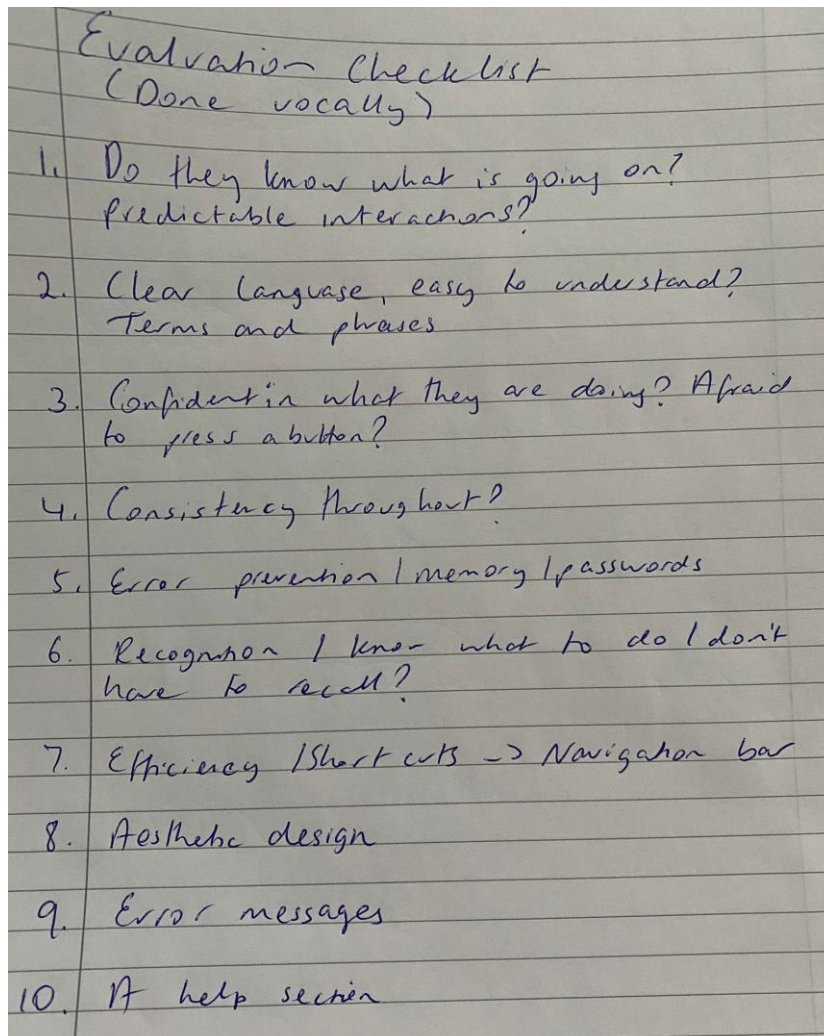 Evaluation Checklist
(Done vocally)
1. Do they know what is going on?
Predictable interactions?
2. Clear language, easy to understand?
Terms and phrases
3. Confident in what they are doing? Afraid
to press a button?
4. Consistency throughout?
5. Error prevention / memory / passwords
6. Recognition / know what to do / don't
have to recall?
7. Efficiency / Short cuts -> Navigation bar
8. Aesthetic design
9. Error messages
10. A help section